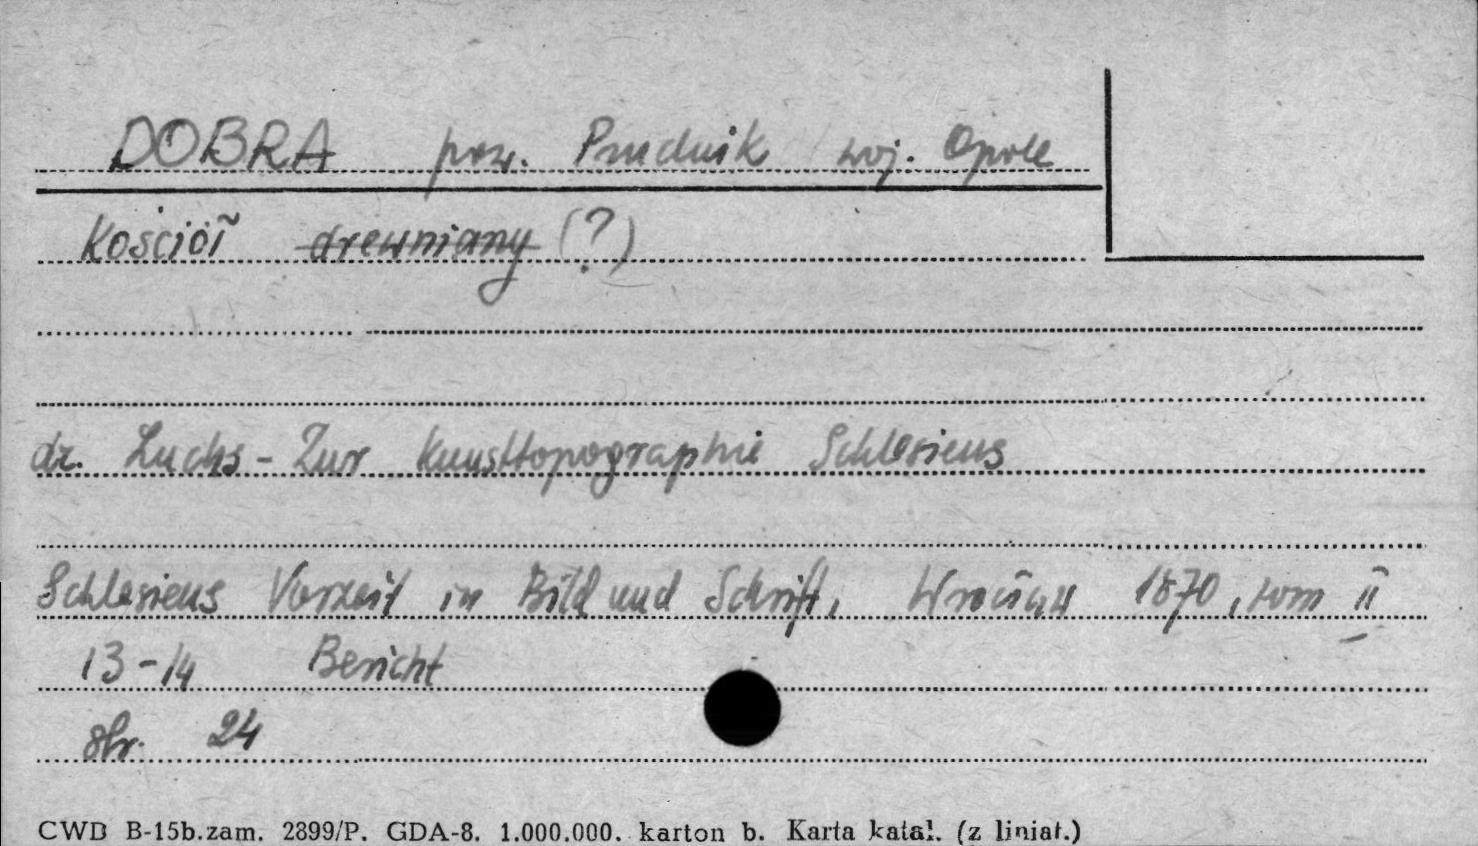 DOBRA pow. Prudnik woj. Opole
Kościół ~~drewniany~~ (?)
dr. Luchs - Zur Kunsttopographie Schlesiens
Schlesiens Vorzeit in Bild und Schrift, Wrocław 1870, tom II
13-14 Bericht
str. 24
CWD B-15b.zam. 2899/P. GDA-8. 1.000.000. karton b. Karta katal. (z liniat.)